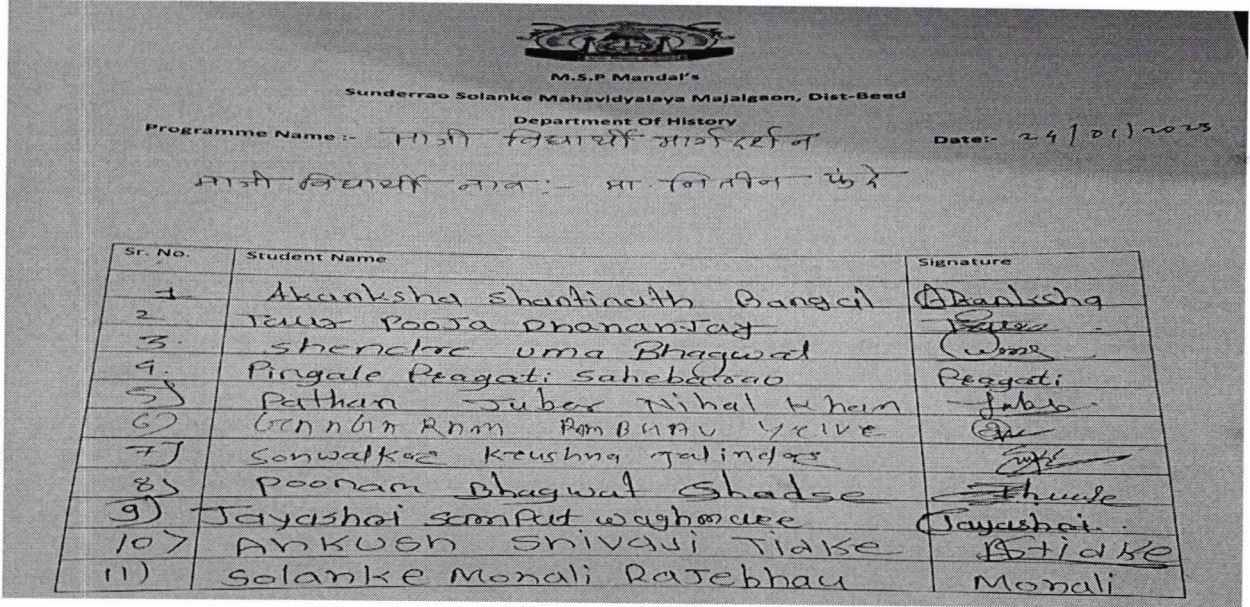 M.S.P Mandal's
Sunderrao Solanke Mahavidyalaya Majalgaon, Dist-Beed
Department Of History
Programme Name :- माजी विद्यार्थी मार्गदर्शन Date:- 24/01/2023
माजी विद्यार्थी नाव :- मा. नितीन फंदे
Sr. No. Student Name Signature
1 Akanksha Shantinath Bangal Akanksha
2 Taur Pooja Dhananjay
3. Shendre uma Bhagwat Uma
4. Pingale Pragati Sahebarao Pragati
5) Pathan Juber Nihal Khan
6) RAM BHAU
7) Sonwalkar Krushna Jalindar
8) Poonam Bhagwat Ghadse
9) Jayashri Sampat waghmare Jayashri.
10> Ankush Shivaji Tidke AStidke
11) Solanke Monali Rajebhau Monali